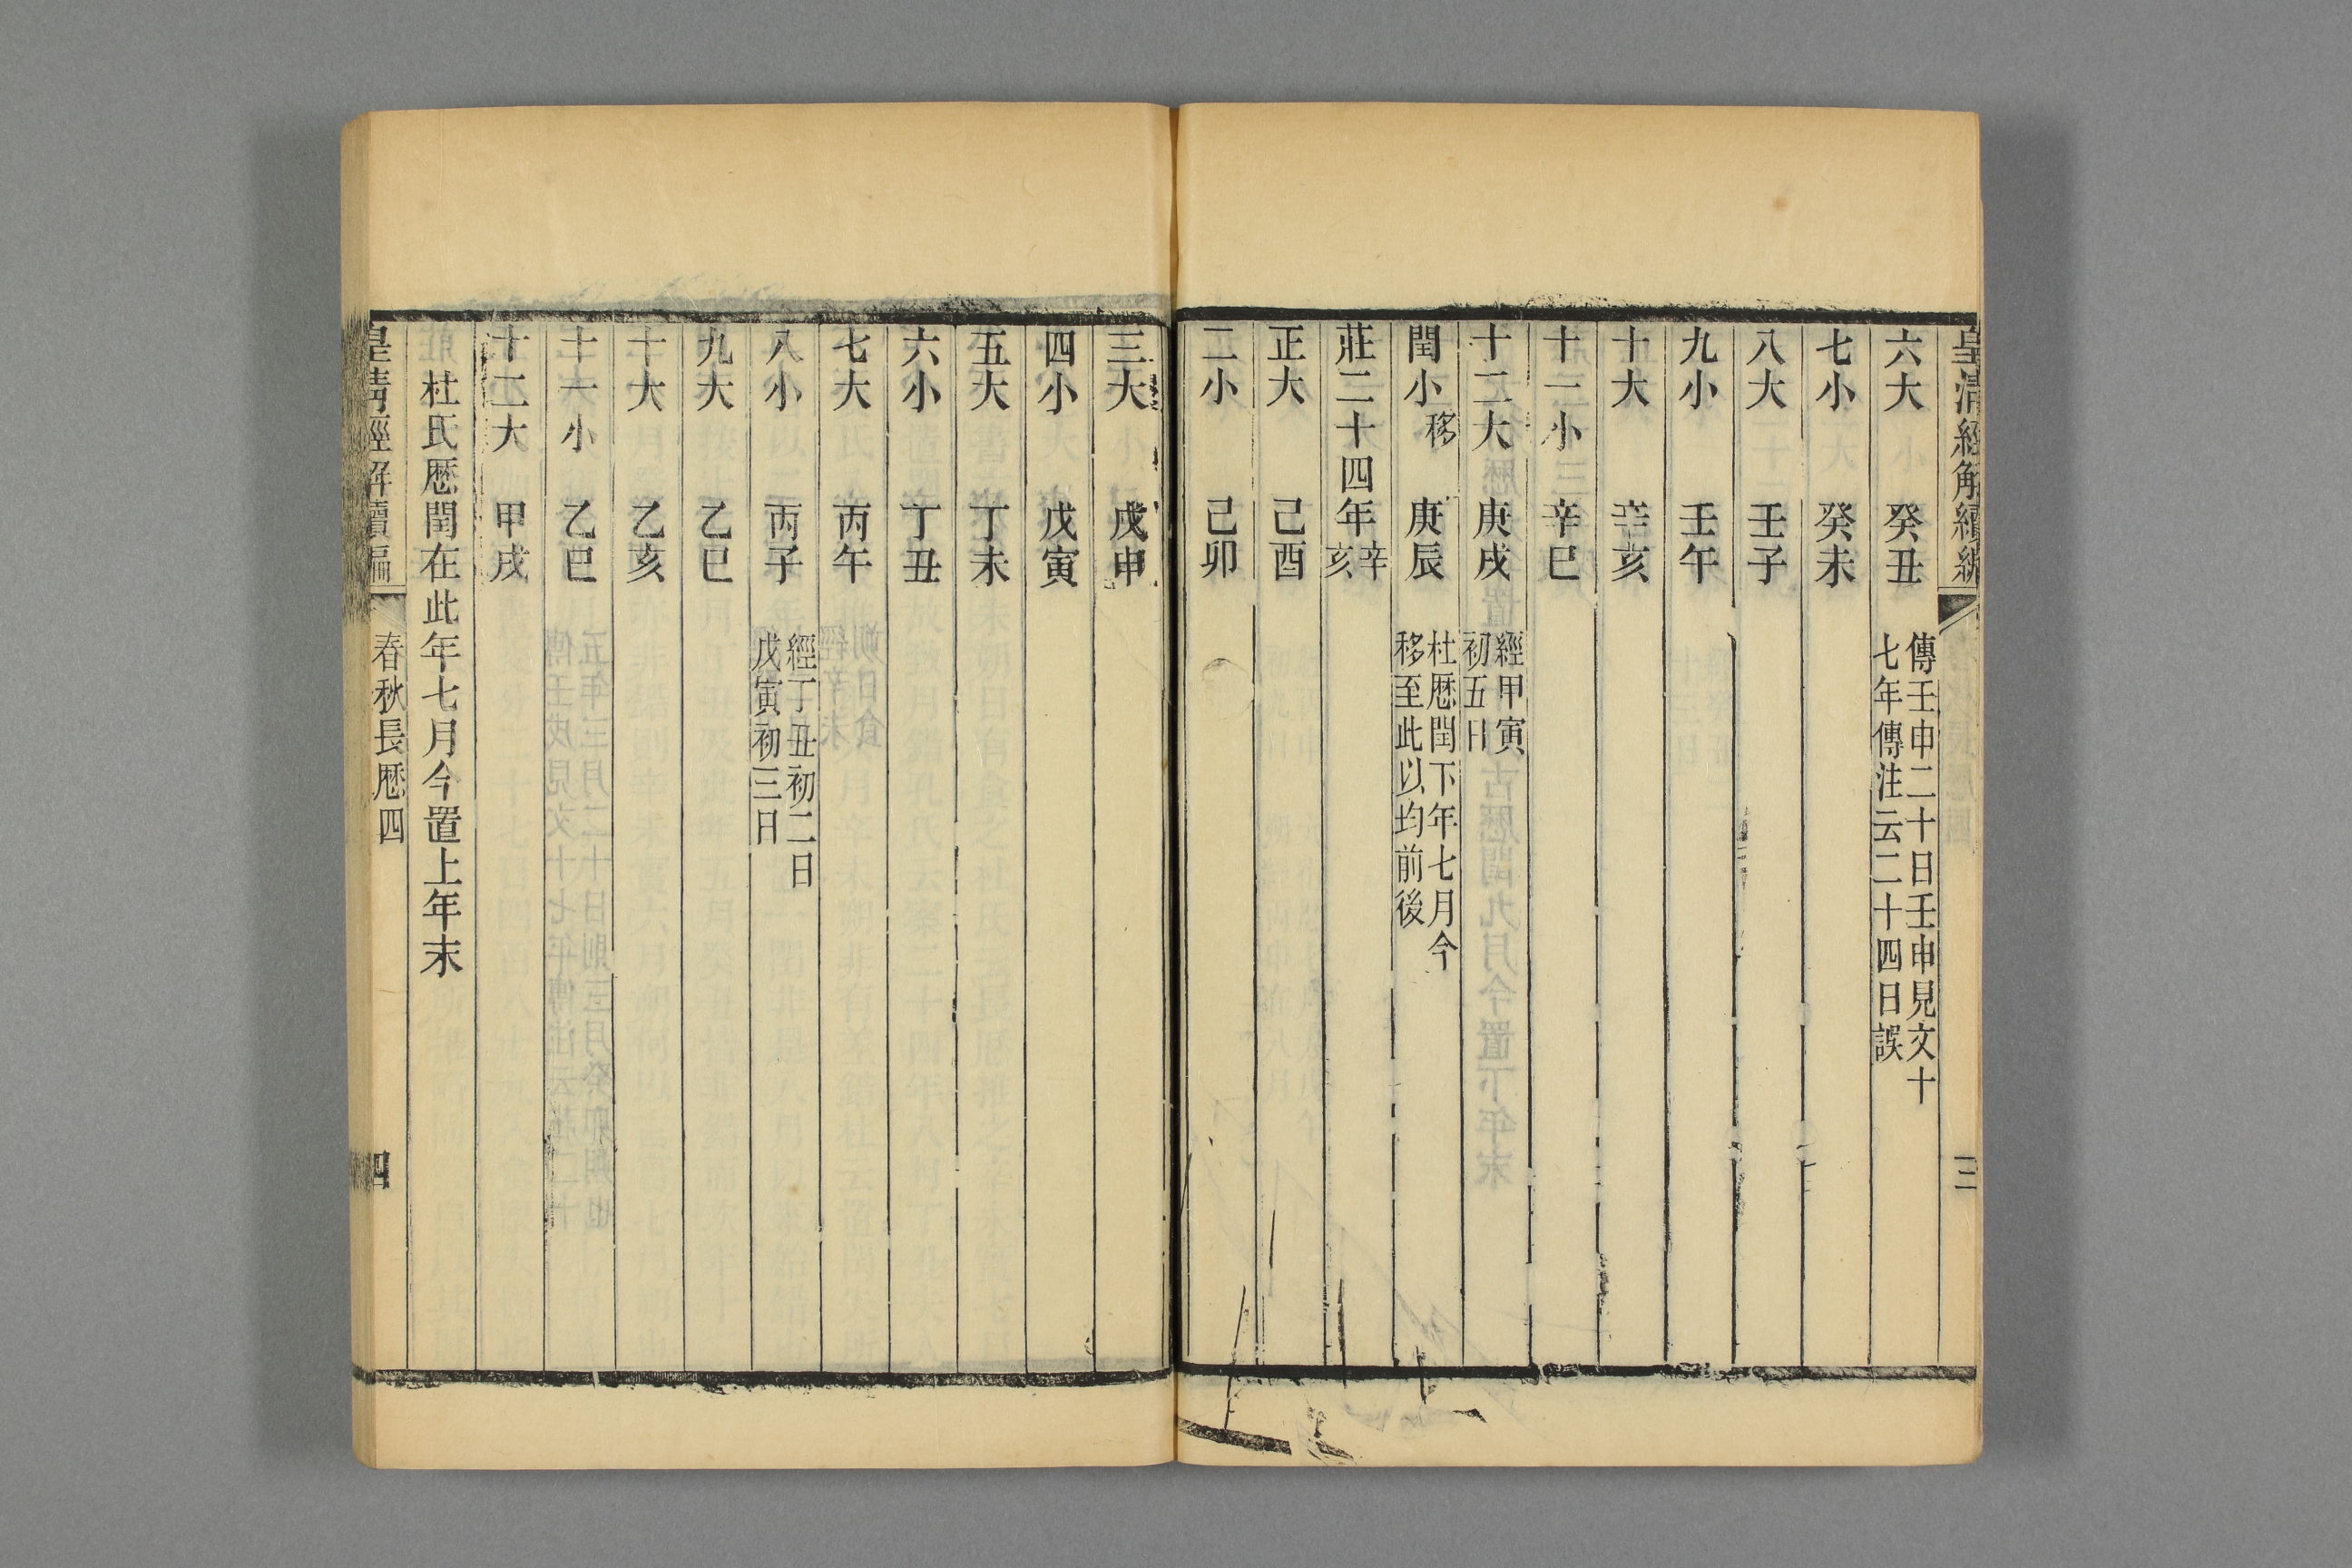 皇清經解續編
三
六大 癸丑 傳壬申二十日壬申見文十
七年傳注云二十四日誤
七小 癸未
八大 壬子
九小 壬午
十大 辛亥
十一小 辛巳
十二大 庚戌 經甲寅
初五日
閏小 移 庚辰 杜厯閏下年七月今
移至此以均前後
莊二十四年 辛亥
正大 己酉
二小 己卯
三大 戊申
四小 戊寅
五大 丁未
六小 丁丑
七大 丙午
八小 丙子 經丁丑初二日
戊寅初三日
九大 乙巳
十大 乙亥
十一小 乙巳
十二大 甲戌
杜氏厯閏在此年七月今置上年末
皇清經解續編 春秋長厯四 四